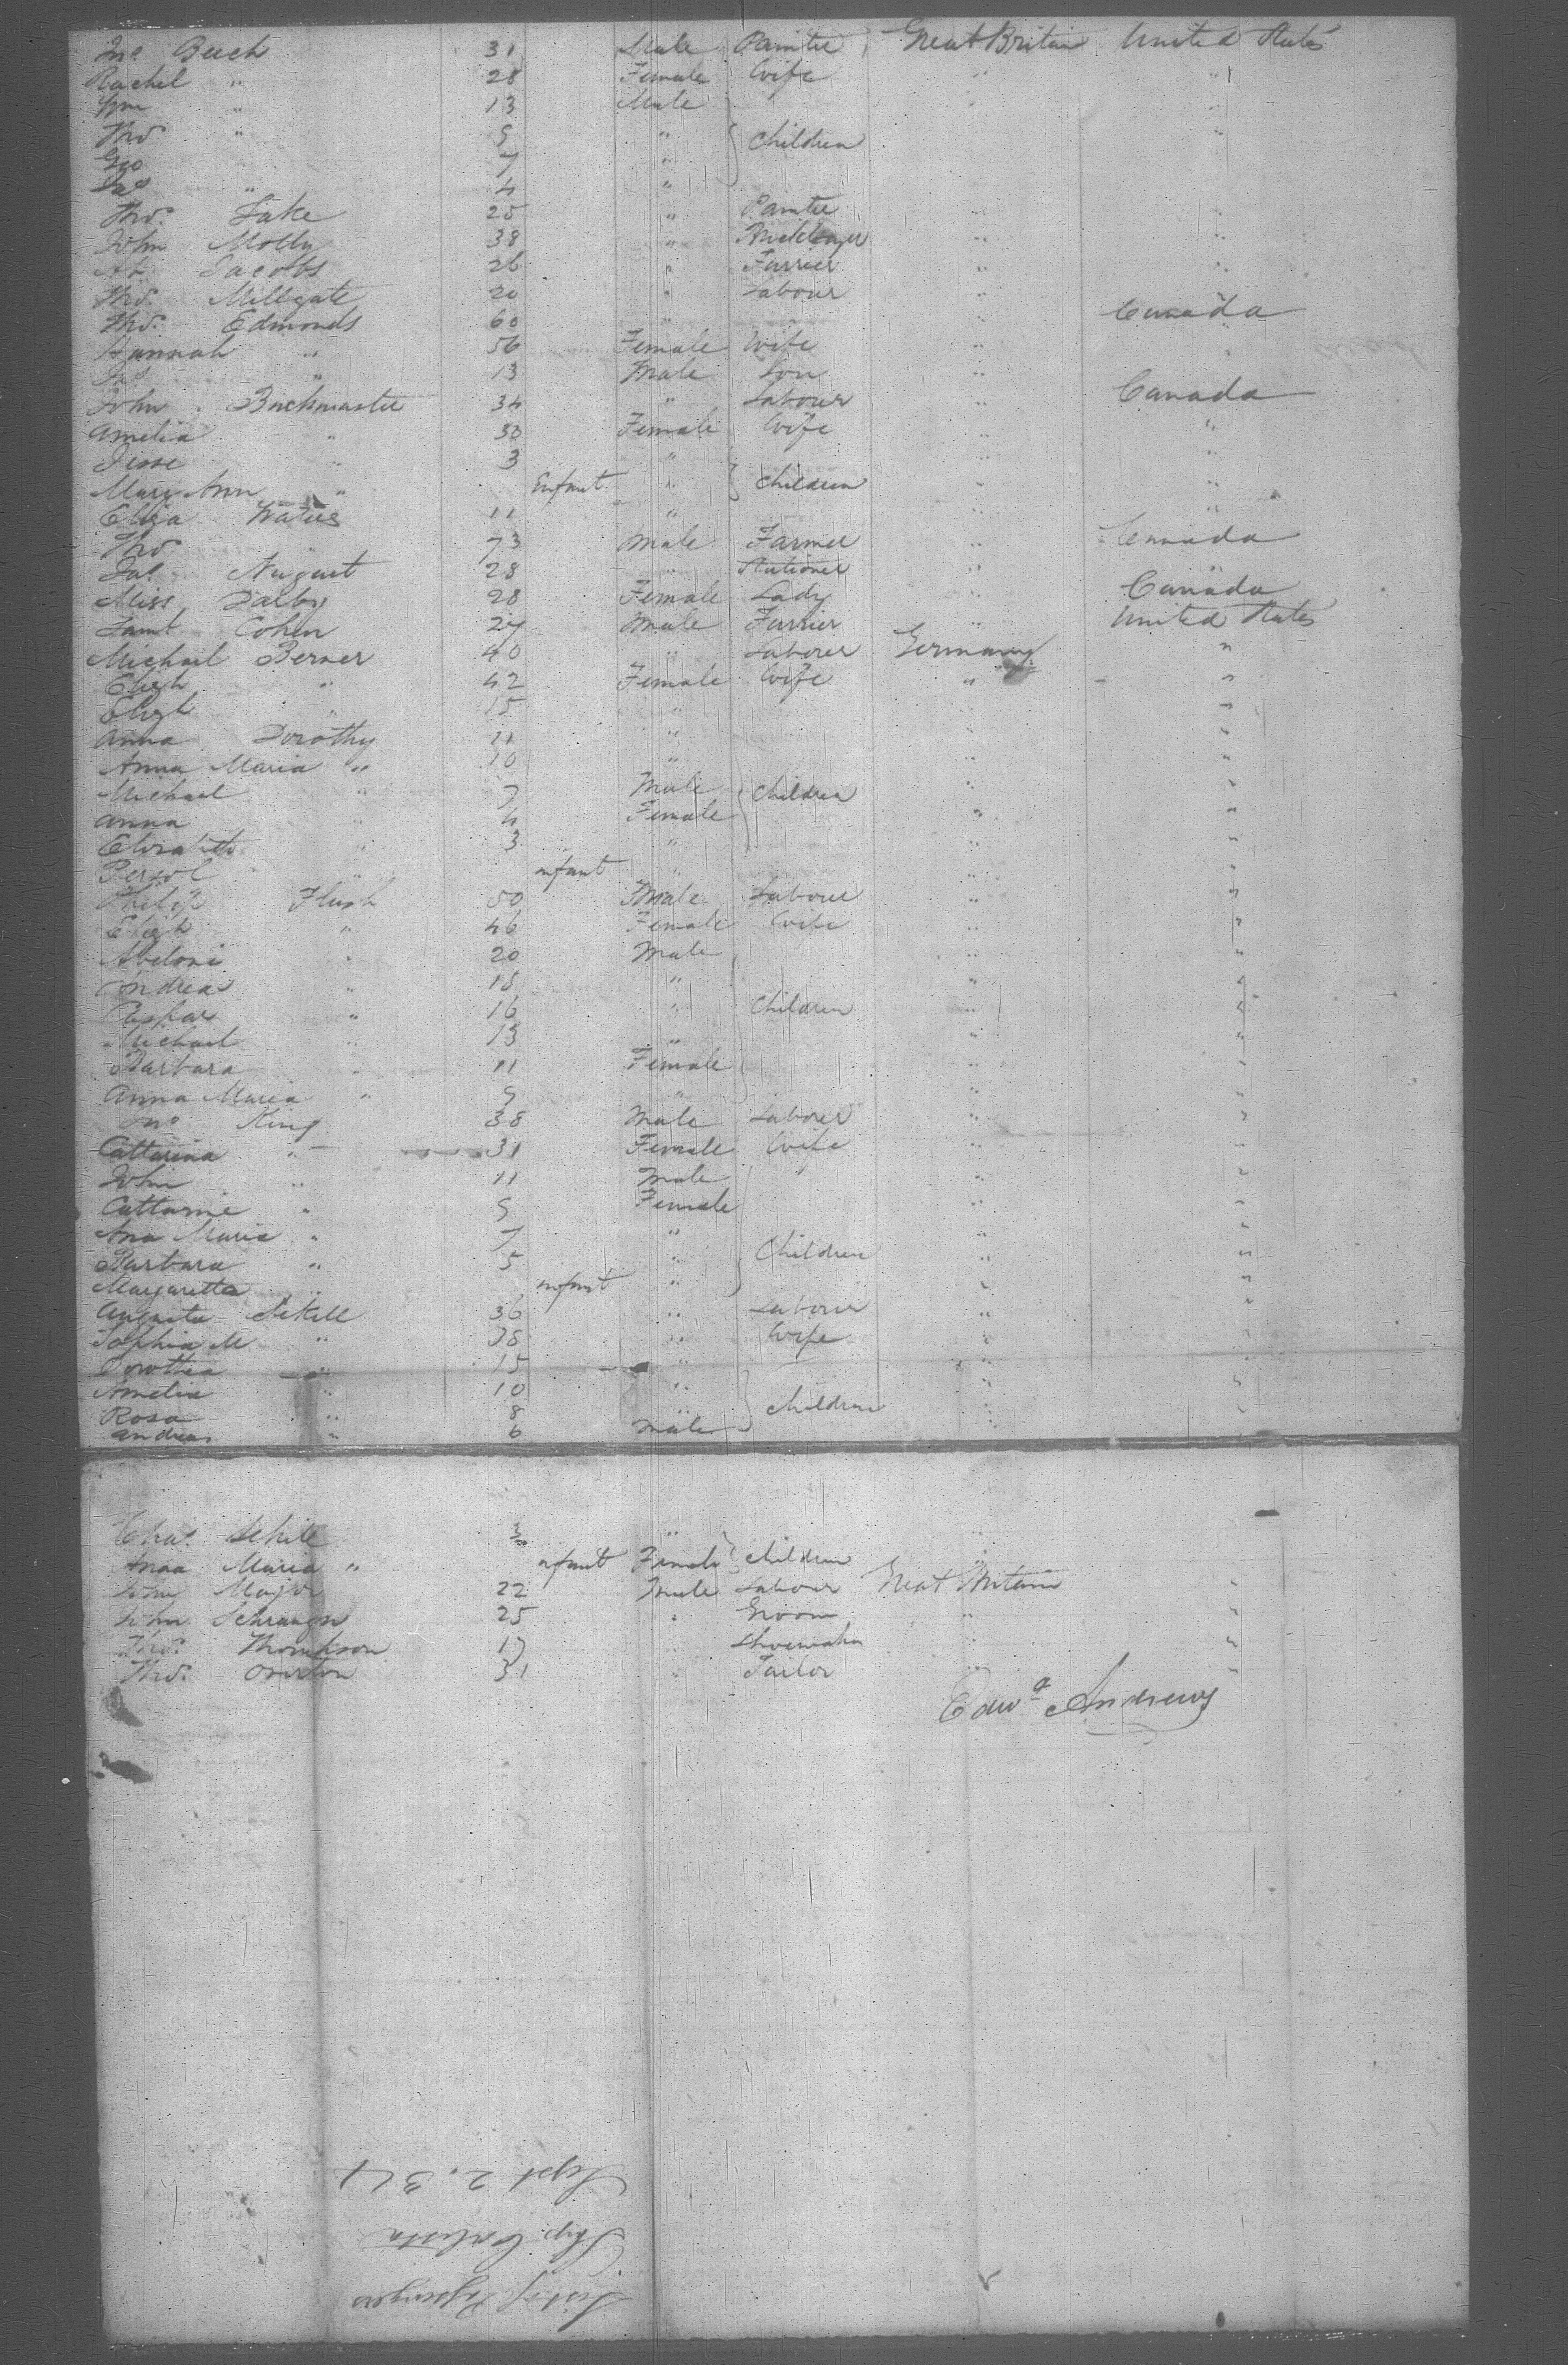 Jno Beech 31 Male Painter Great Britain United States
Rachel " 28 Female Wife " "
Wm " 13 Male " "
Thos " 9 " Children "
Geo 7 "
Jas " 4 "
Thos. Lake 25 " Painter " "
John Molly 38 " Bricklayer " "
Ab. Jacobs 26 " Furrier " "
Thos. Millgate 20 " Labour "
Thos. Edmonds 60 " " " Canada
Hannah " 56 Female Wife " "
Jas " 13 Male Son "
John Buckmaster 34 " Labour " Canada
Amelia " 30 Female Wife " "
Jesse " 3 " " "
Mary Ann " Infant " Children " "
Eliza Waters 11 " "
Thos " 73 Male Farmer " Canada
Jas Nugent 28 " Stationer "
Miss Darby 28 Female Lady Canada
Saml Cohen 27 Male Furrier " United States
Michael Berner 40 " Laborer Germany "
Elizh " 42 Female Wife " "
Elizh " 15 " "
Anna Dorothy 11 " "
Anna Maria " 10 " " "
Michael " 7 Male Children " "
Anna " 4 Female " "
Elizabeth " 3 " " "
infant " " "
Philip Flush 50 Male Labour " "
Elizh " 46 Female Wife " "
20 Male " "
Andrea " 18 " " "
Caspar " 16 " Children " "
Michael " 13 " "
Barbara " 11 Female "
Anna Maria " 9 " " "
Jno King 38 Male Laborer " "
Cattarina " 31 Female Wife " "
John " 11 Male " "
Cattarine " 9 Female " "
Ana Maria " 7 " " "
Barbara " 5 " Children " "
Margaretta " infant " " "
Augusta Sekill 36 " Labour " "
Sophia M " 38 " Wife " "
Dorothea " 15 " " "
Amelia " 10 " " "
Rosa " 8 " Children " "
Andreas " 6 Male
Chas. Sekile 3 " "
Anna Maria " infant Female Children "
John Major 22 Male Labour Great Britain "
John 25 " Groom " "
Thos. Thompson 17 " Shoemaker " "
Thos. Overton 31 " Tailor " "
Edwd Andrews
List of Passengers
Ship Calista
Sept 2. 34